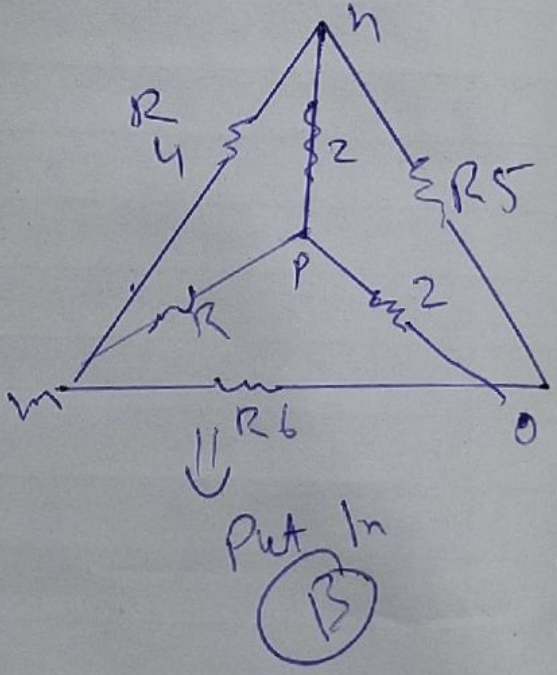 n
R
4
2
R5
P
R
2
m
R6
O
Put In
B